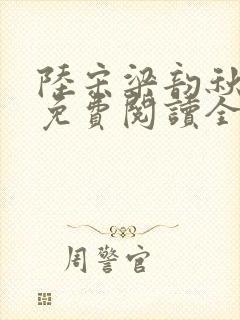 陸宗梁韵秋
免費閱讀全
周警官